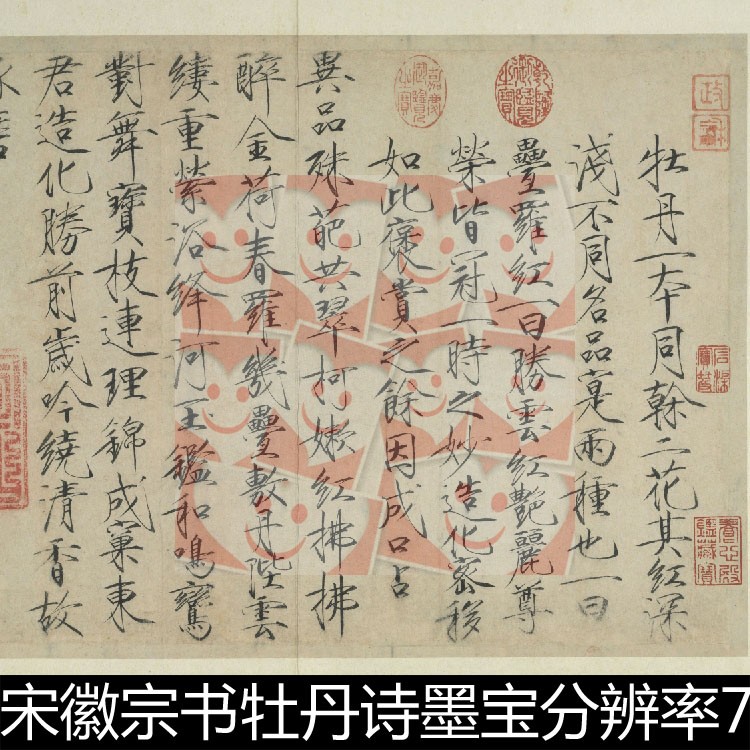 牡丹一本同幹二花其紅深
淺不同名品寔兩種也一曰
疊羅紅一曰勝雲紅艷麗尊
榮皆冠一時之妙造化密移
如此褒賞之餘因成口占
異品殊葩共翠柯嫩紅拂拂
醉金荷春羅幾疊敷丹陛雲
縷重縈浴絳河玉鑑和鳴鸞
對舞寶枝連理錦成窠東
君造化勝前歲吟繞清香故
乾隆御覽之寶
嘉慶御覽之寶
宋徽宗书牡丹诗墨宝分辨率7